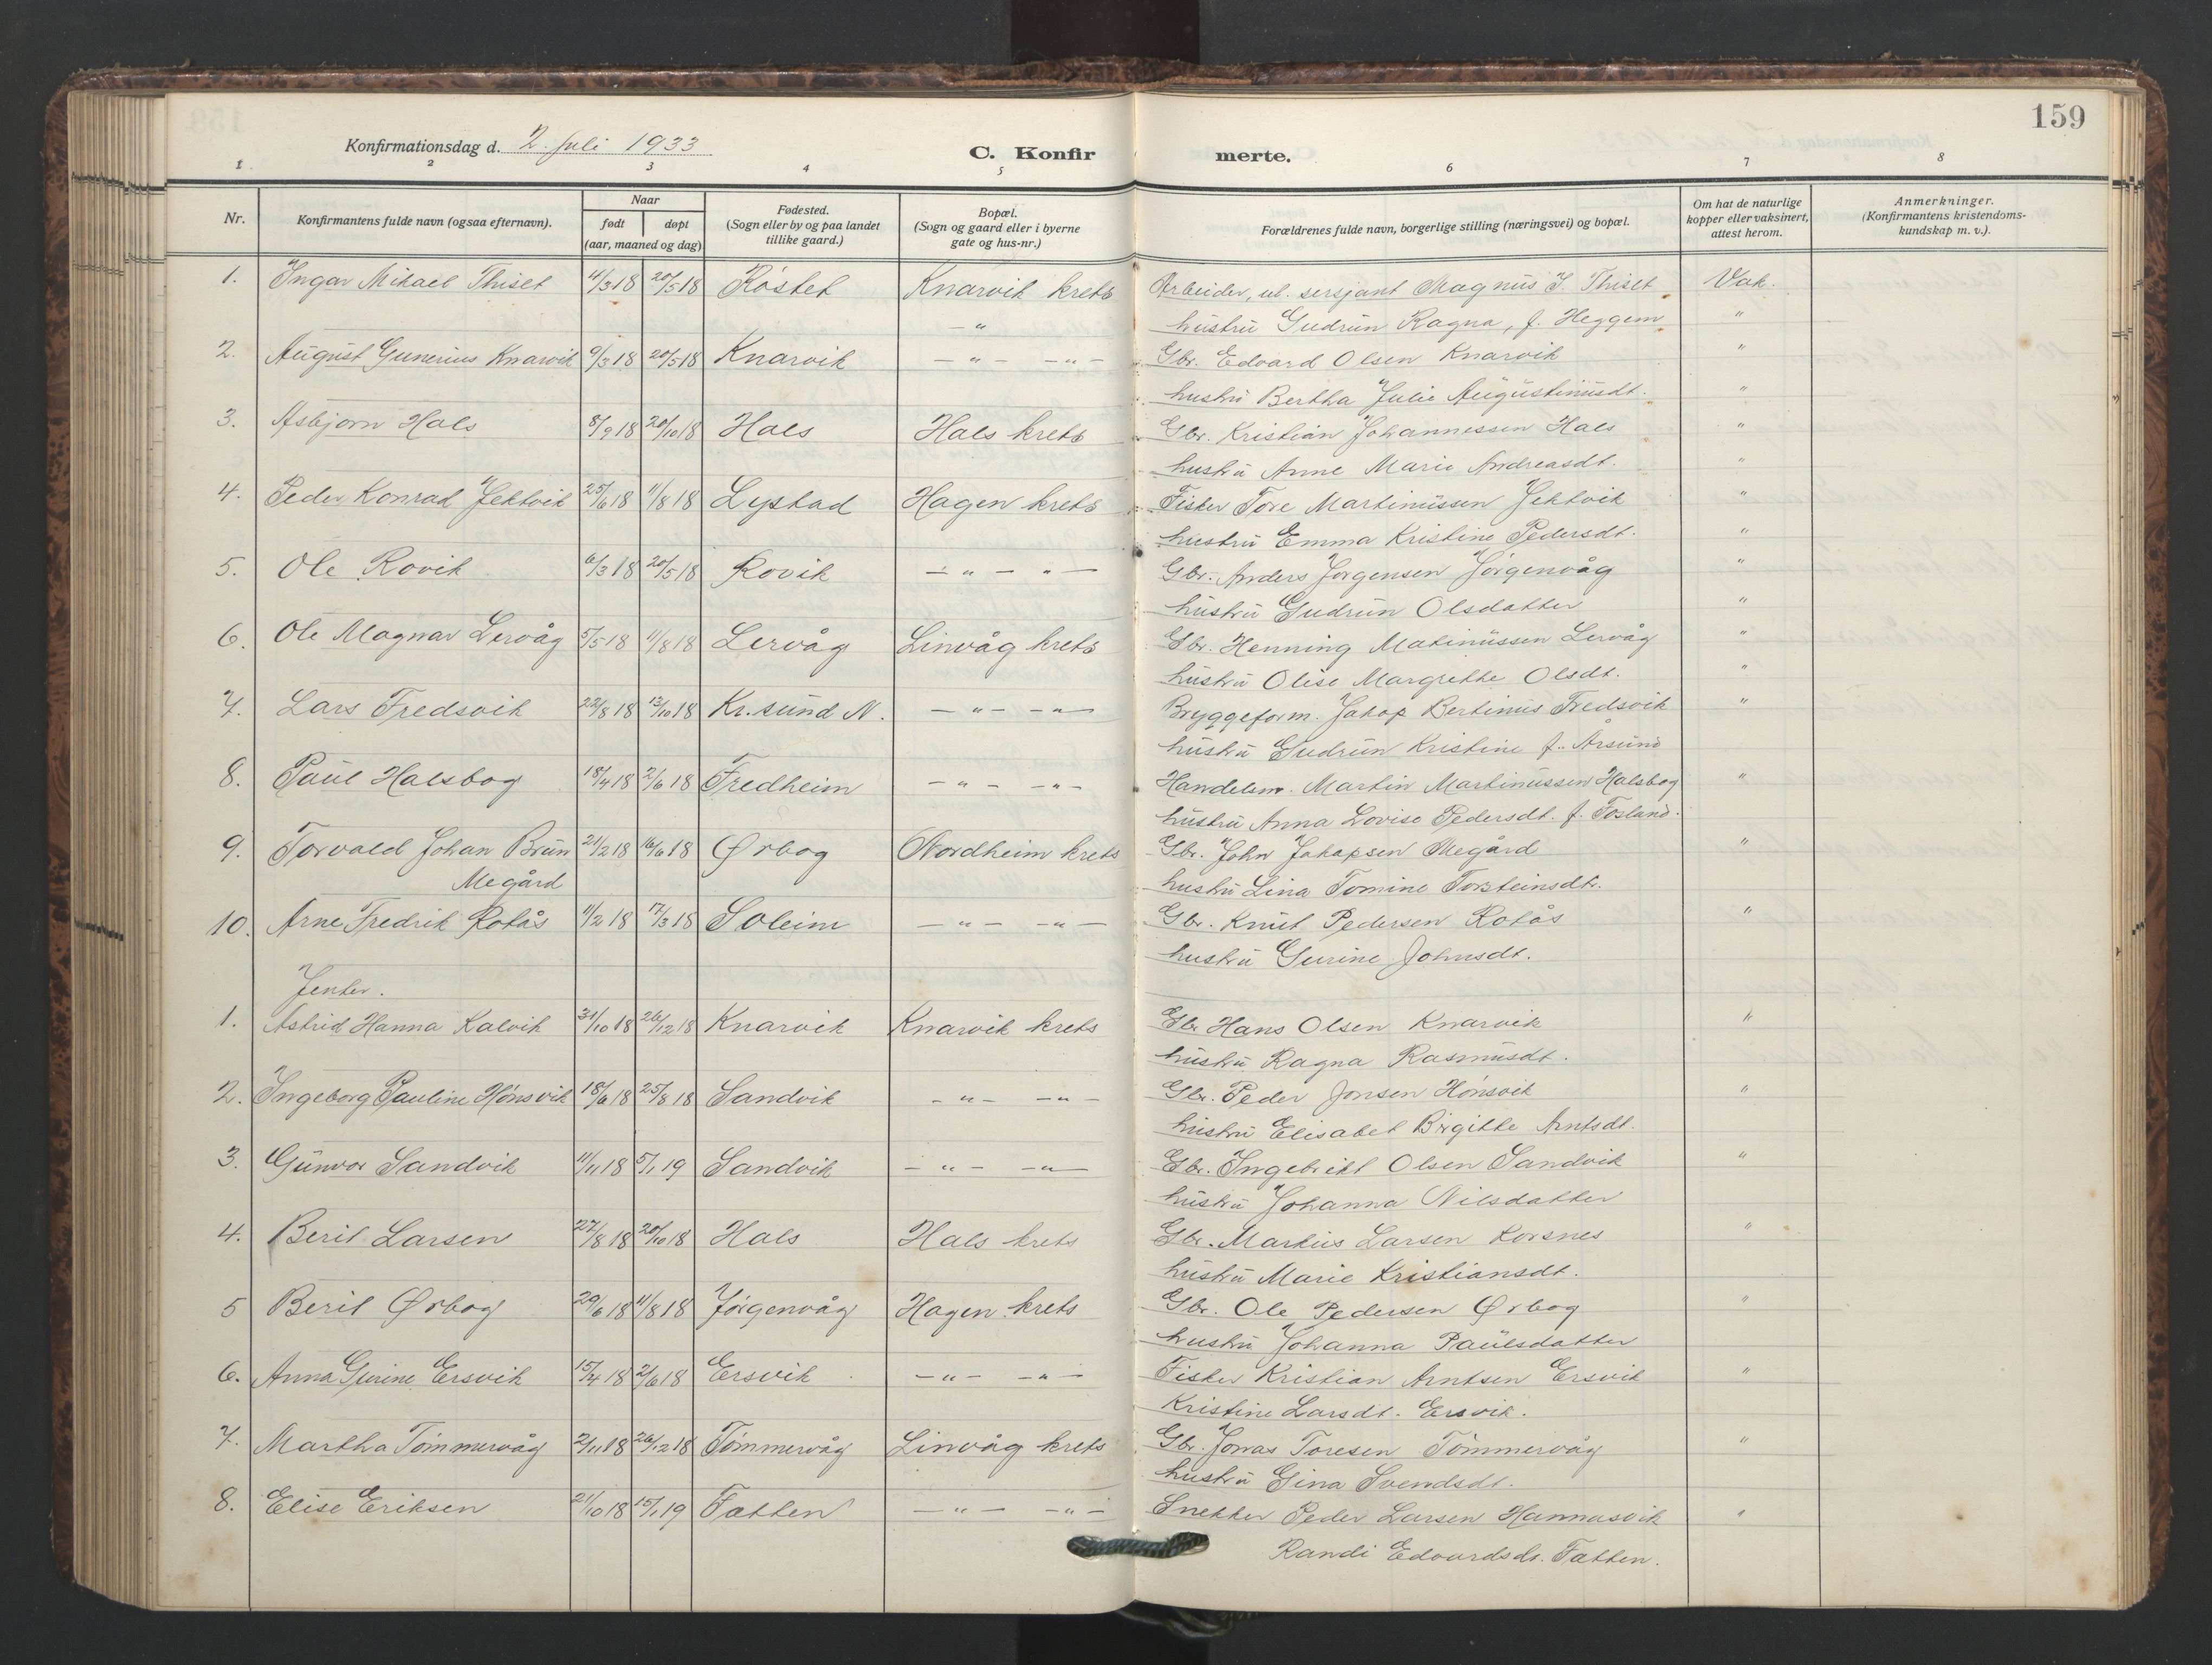 159
Konfirmationsdag d. 2. Juli 1933
C. Konfirmerte.
1 2 3 4 5 6 7 8
Nr. Konfirmantens fulde navn (ogsaa efternavn). Naar født døpt (aar, maaned og dag) Fødested. (Sogn eller by og paa landet tillike gaard.) Bopæl. (Sogn og gaard eller i byerne gate og hus-nr.) Forældrenes fulde navn, borgerlige stilling (næringsvei) og bopæl. Om hat de naturlige kopper eller vaksinert, attest herom. Anmerkninger. (Konfirmantens kristendoms-kundskap m. v.).
1. Ingar Mikael Thiset 4/3 18 20/5 18 Røstet Knarvik krets Arbeider, ul. sersjant Magnus J. Thiset Vak.
— " hustru Gudrun Ragna, f. Heggem "
2. August Gunerius Knarvik 9/3 18 20/5 18 Knarvik — " — — " — Gbr. Edvard Olsen Knarvik "
hustru Bertha Julie Augustinusdt. "
3. Asbjørn Hals 8/9 18 20/10 18 Hals Hals krets Gbr. Kristian Johannessen Hals "
hustru Anne Marie Andreasdt. "
4. Peder Konrad Jektvik 25/6 18 11/8 18 Lystad Hagen krets Fisker Tore Martinussen Jektvik "
hustru Emma Kristine Pedersdt. "
5. Ole Rovik 6/3 18 20/5 18 Rovik — " — " — Gbr. Anders Jørgensen Jørgenvåg "
hustru Gudrun Olsdatter "
6. Ole Magnar Lervåg 5/5 18 11/8 18 Lervåg Linvåg krets Gbr. Henning Matinussen Lervåg "
hustru Olise Margrethe Olsdt. "
7. Lars Fredsvik 22/8 18 13/10 18 Kr.sund N. — " — — " — Bryggeform. Jakop Bertinus Fredsvik "
hustru Gudrun Kristine f. Årsund
8. Paul Halsbog 18/4 18 2/6 18 Fredheim — " — — " — Handelsm. Martin Martinussen Halsbog "
hustru Anna Lovise Pedersdt. f. Fosland.
9. Torvald Johan Brun 21/2 18 16/6 18 Ørbog Nordheim krets Gbr. John Jakopsen Megård "
Megård hustru Lina Tomine Torsteinsdtr.
10. Arne Fredrik Rotås 11/2 18 17/3 18 Soleim — " — — " — Gbr. Knut Pedersen Rotås "
hustru Gurine Johnsdt.
Jenter.
1. Astrid Hanna Kalvik 31/10 18 26/12 18 Knarvik Knarvik krets Gbr Hans Olsen Knarvik "
hustru Ragna Rasmusdt.
2. Ingeborg Pauline Hønsvik 18/6 18 25/8 18 Sandvik — " — — " — Gbr. Peder Jonsen Hønsvik "
hustru Elisabet Birgitte Arntsdt.
3. Gunvor Sandvik 11/11 18 5/1 19 Sandvik — " — — " — Gbr. Ingebrikt Olsen Sandvik "
hustru Johanna Nilsdatter
4. Berit Larsen 27/8 18 20/10 18 Hals Hals krets Gbr. Markus Larsen Korsnes "
hustru Marie Kristiansdt.
5 Berit Ørbog 29/6 18 11/8 18 Jørgenvåg Hagen krets Gbr. Ole Pedersen Ørbog "
hustru Johanna Paulsdatter
6. Anna Gurine Ersvik 15/4 18 2/6 18 Ersvik — " — — " — Fisker Kristian Arntsen Ersvik "
Kristine Larsdt. Ersvik.
7. Martha Tømmervåg 2/11 18 26/12 18 Tømmervåg Linvåg krets Gbr. Jonas Toresen Tømmervåg "
hustru Gina Svendsdt.
8. Elise Eriksen 21/10 18 15/1 19 Fatten — " — — " — Snekker Peder Larsen Hannasvik "
Randi Edvardsdt. Fatten.